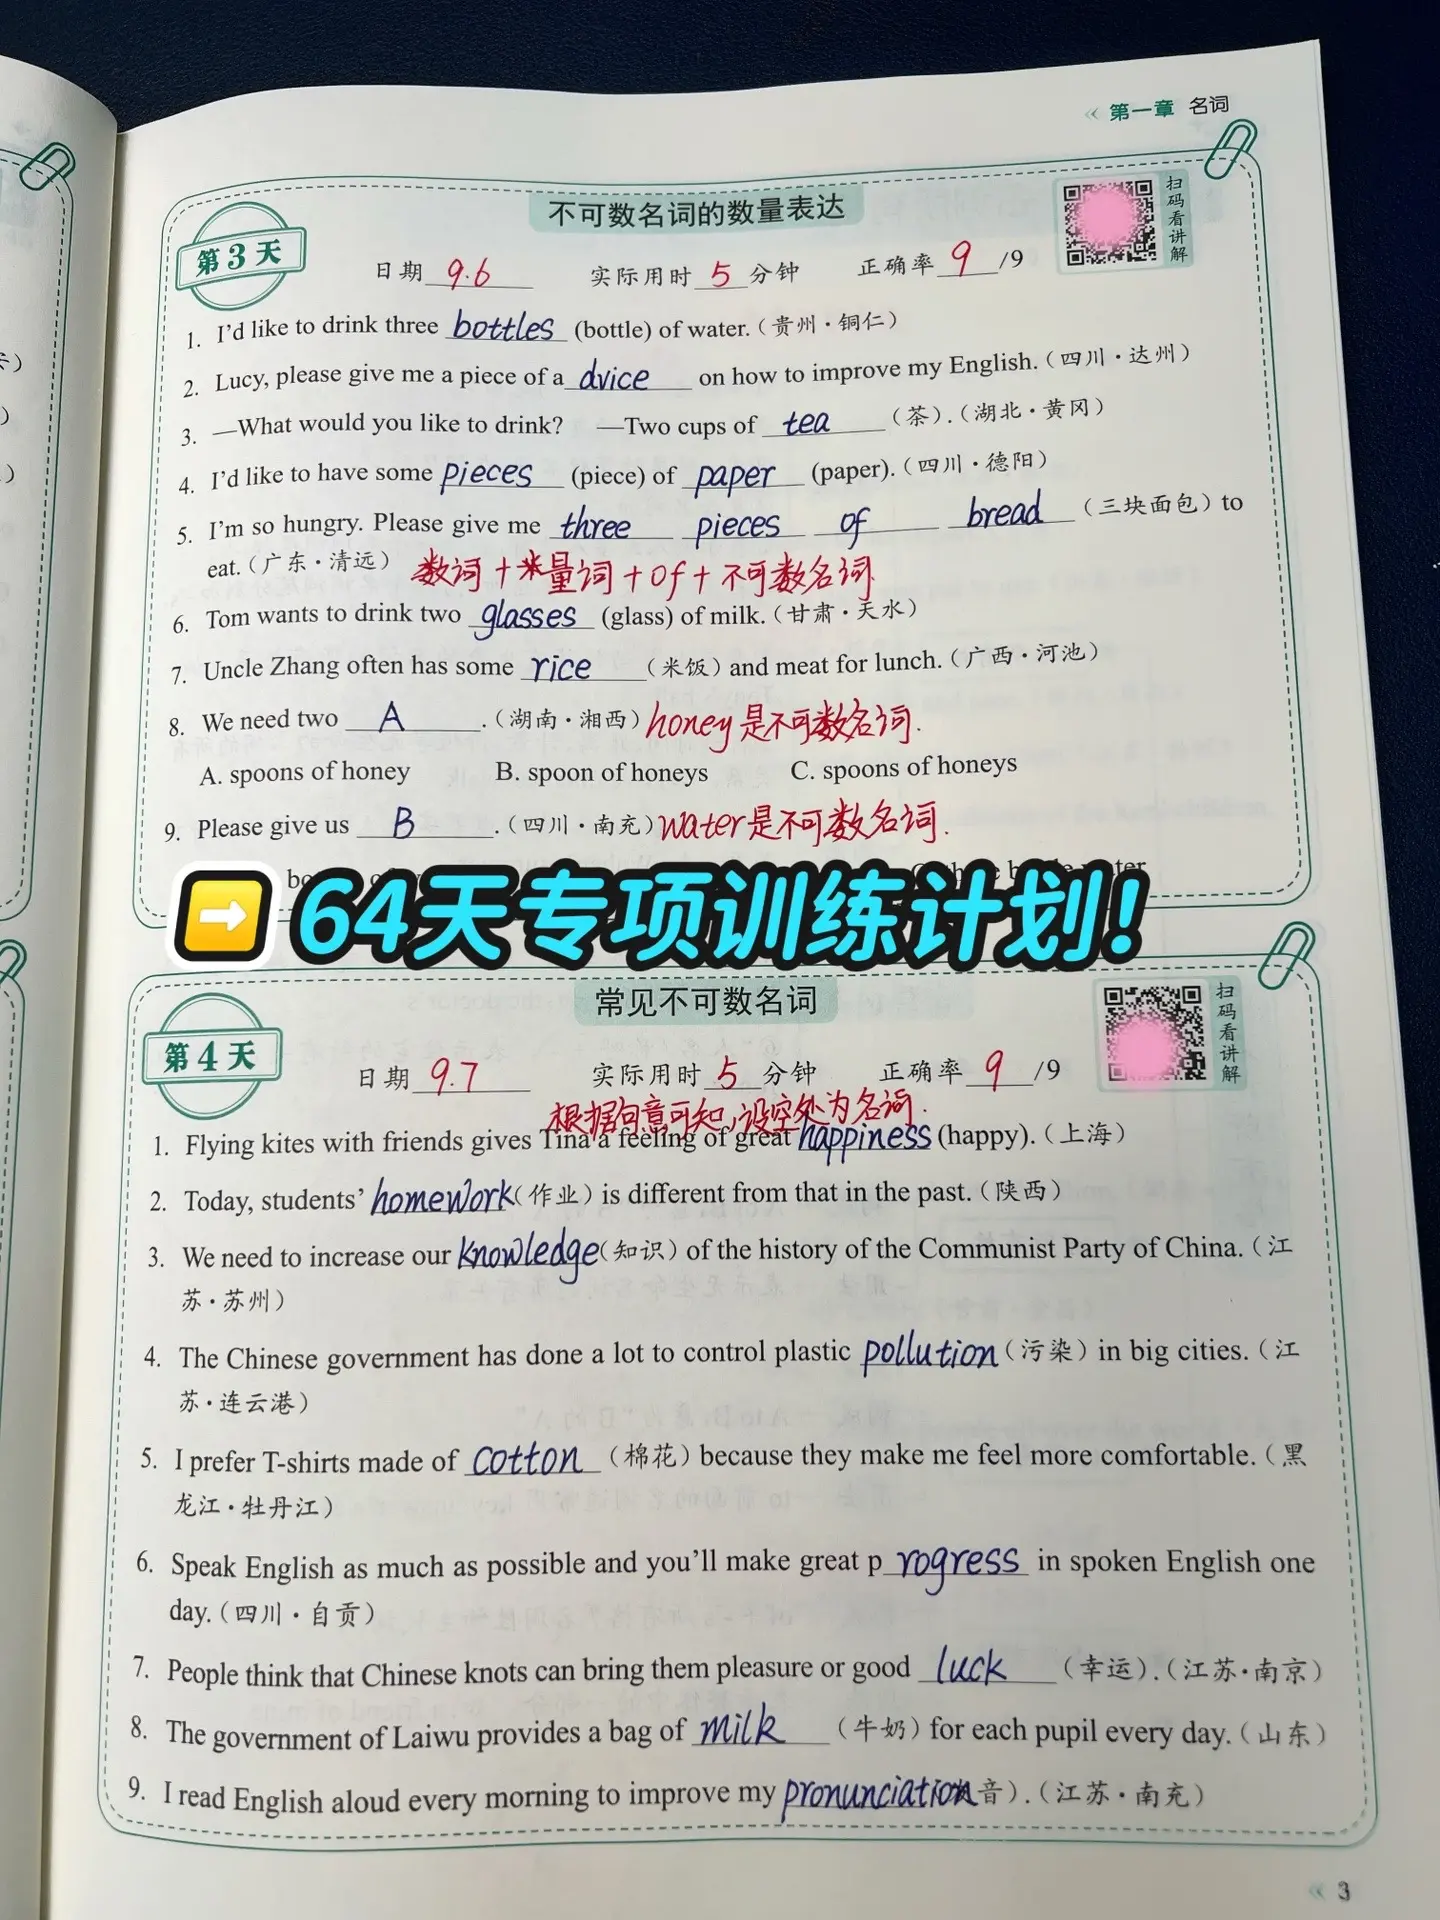 第一章 名词
不可数名词的数量表达
扫码看讲解
第3天
日期 9.6 实际用时 5 分钟 正确率 9 /9
1. I'd like to drink three bottles (bottle) of water.(贵州·铜仁)
2. Lucy, please give me a piece of advice on how to improve my English.(四川·达州)
3. —What would you like to drink? —Two cups of tea (茶).(湖北·黄冈)
4. I'd like to have some pieces (piece) of paper (paper).(四川·德阳)
5. I'm so hungry. Please give me three pieces of bread (三块面包) to
eat.(广东·清远) 数词+量词+of+不可数名词
6. Tom wants to drink two glasses (glass) of milk.(甘肃·天水)
7. Uncle Zhang often has some rice (米饭) and meat for lunch.(广西·河池)
8. We need two A .(湖南·湘西) honey是不可数名词.
A. spoons of honey B. spoon of honeys C. spoons of honeys
9. Please give us B .(四川·南充) water是不可数名词.
64天专项训练计划!
常见不可数名词
扫码看讲解
第4天
日期 9.7 实际用时 5 分钟 正确率 9 /9
根据句意可知,设空处为名词.
1. Flying kites with friends gives Tina a feeling of great happiness (happy).(上海)
2. Today, students' homework (作业) is different from that in the past.(陕西)
3. We need to increase our knowledge (知识) of the history of the Communist Party of China.(江
苏·苏州)
4. The Chinese government has done a lot to control plastic pollution (污染) in big cities.(江
苏·连云港)
5. I prefer T-shirts made of cotton (棉花) because they make me feel more comfortable.(黑
龙江·牡丹江)
6. Speak English as much as possible and you'll make great progress in spoken English one
day.(四川·自贡)
7. People think that Chinese knots can bring them pleasure or good luck (幸运).(江苏·南京)
8. The government of Laiwu provides a bag of milk (牛奶) for each pupil every day.(山东)
9. I read English aloud every morning to improve my pronunciation 音).(江苏·南充)
3